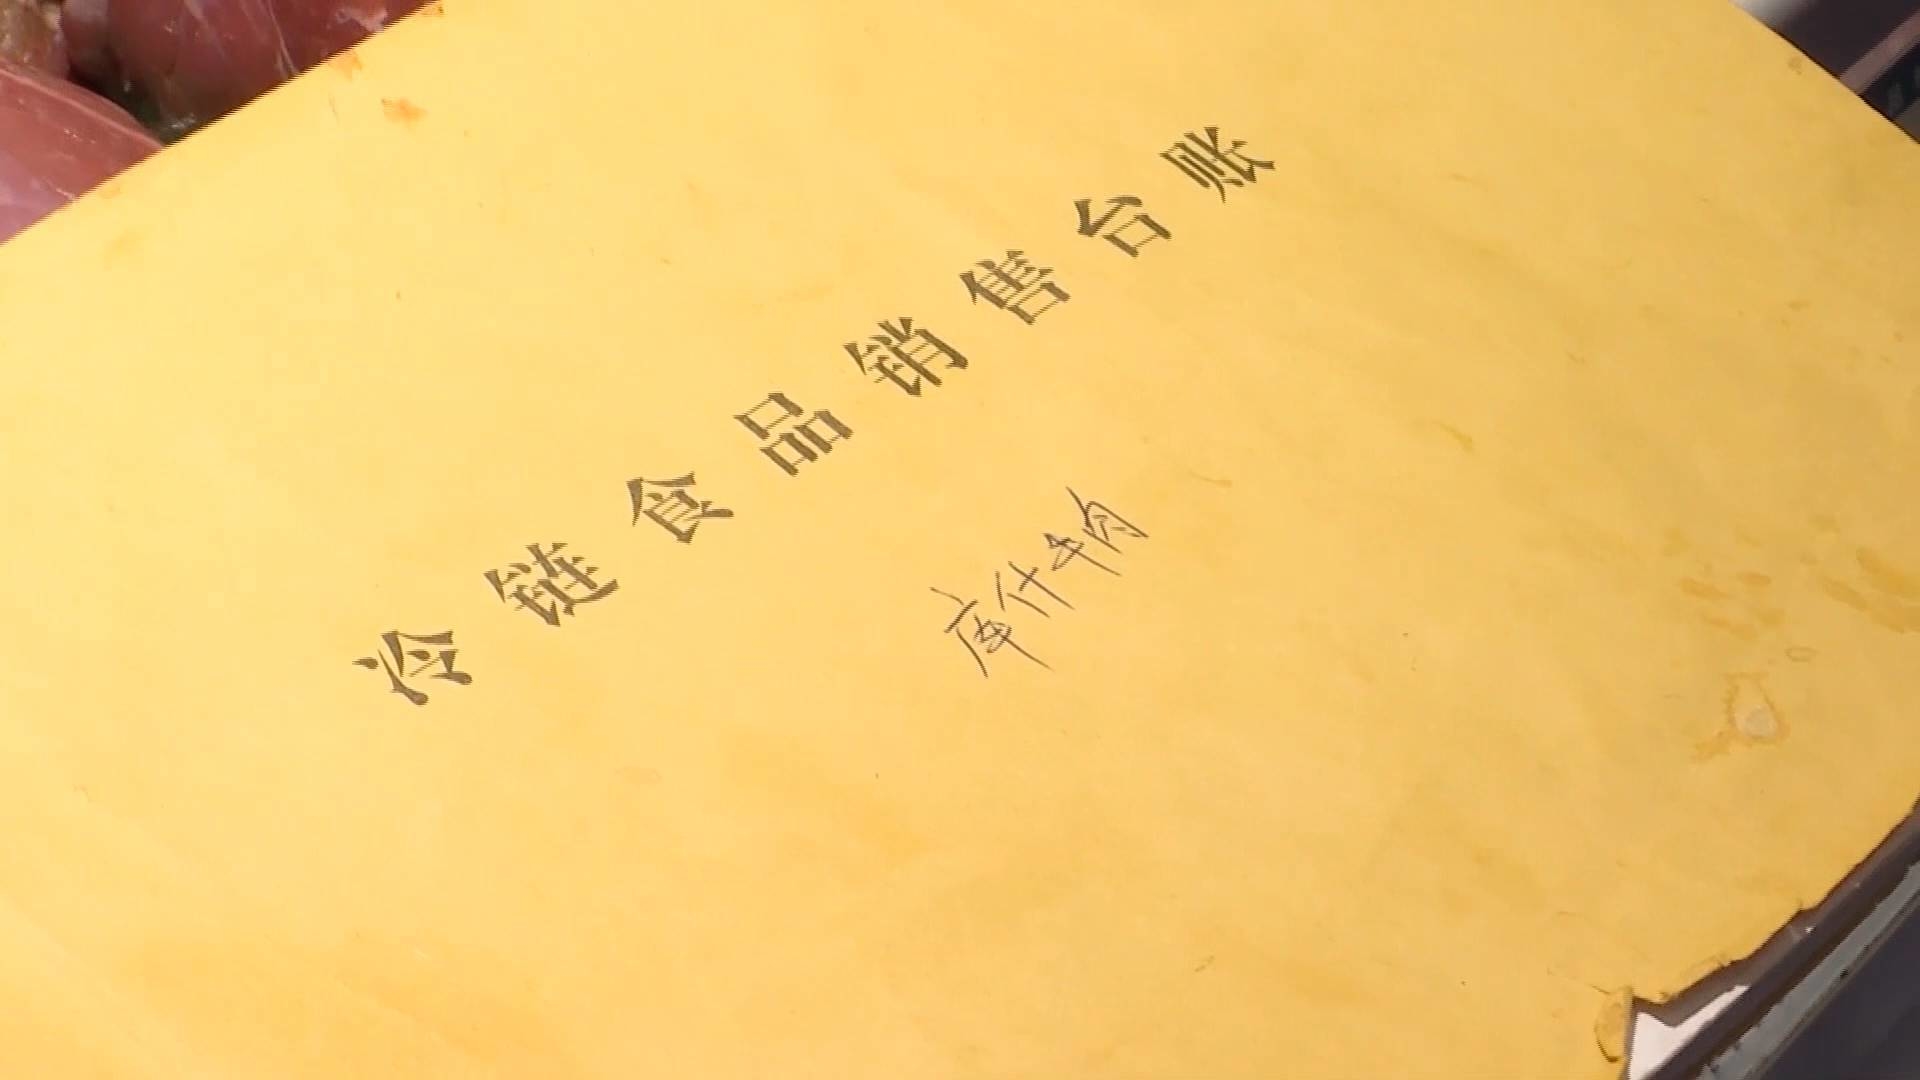 冷链食品销售台账
库什牛肉